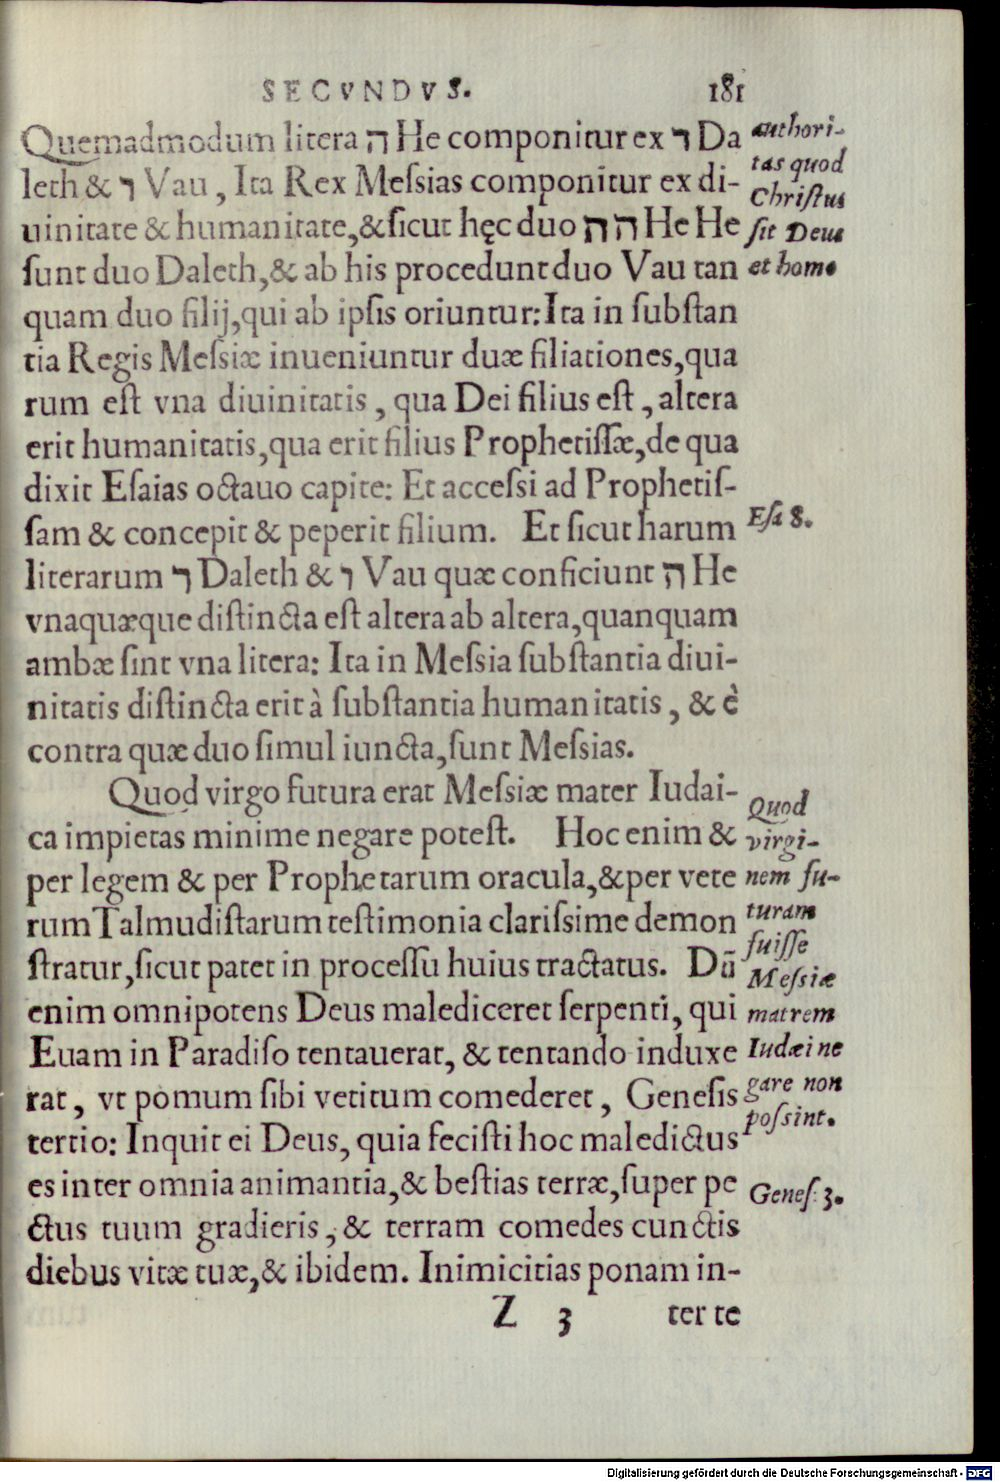 SECVNDVS. 181
Quemadmodum litera ה He componitur ex ד Da
leth & ו Vau, Ita Rex Meſsias componitur ex di-
uinitate & humanitate,&ſicut hęc duo ה ה He He
ſunt duo Daleth,& ab his procedunt duo Vau tan
quam duo filij,qui ab ipſis oriuntur:Ita in ſubſtan
tia Regis Meſsiæ inueniuntur duæ filiationes,qua
rum eſt vna diuinitatis, qua Dei filius eſt, altera
erit humanitatis,qua erit filius Prophetiſſæ,de qua
dixit Eſaias octauo capite: Et acceſsi ad Prophetiſ-
ſam & concepit & peperit filium. Et ſicut harum
literarum ד Daleth & ו Vau quæ conficiunt ה He
vnaquæque diſtincta eſt altera ab altera,quanquam
ambæ ſint vna litera: Ita in Meſsia ſubſtantia diui-
nitatis diſtincta erit à ſubſtantia humanitatis, & è
contra quæ duo ſimul iuncta,ſunt Meſsias.
Quod virgo futura erat Meſsiæ mater Iudai-
ca impietas minime negare poteſt. Hoc enim &
per legem & per Prophetarum oracula,&per vete
rum Talmudiſtarum teſtimonia clariſsime demon
ſtratur,ſicut patet in proceſſu huius tractatus. Dū
enim omnipotens Deus malediceret ſerpenti, qui
Euam in Paradiſo tentauerat, & tentando induxe
rat, vt pomum ſibi vetitum comederet, Geneſis
tertio: Inquit ei Deus, quia feciſti hoc maledictus
es inter omnia animantia,& beſtias terræ,ſuper pe
ctus tuum gradieris, & terram comedes cunctis
diebus vitæ tuæ,& ibidem. Inimicitias ponam in-
Z 3 ter te
authori-
tas quod
Chriſtus
ſit Deus
et homo
Eſa 8.
Quod
virgi-
nem fu-
turam
fuiſſe
Meſsiæ
matrem
Iudæi ne
gare non
poſsint.
Geneſ. 3.
Digitalisierung gefördert durch die Deutsche Forschungsgemeinschaft - DFG